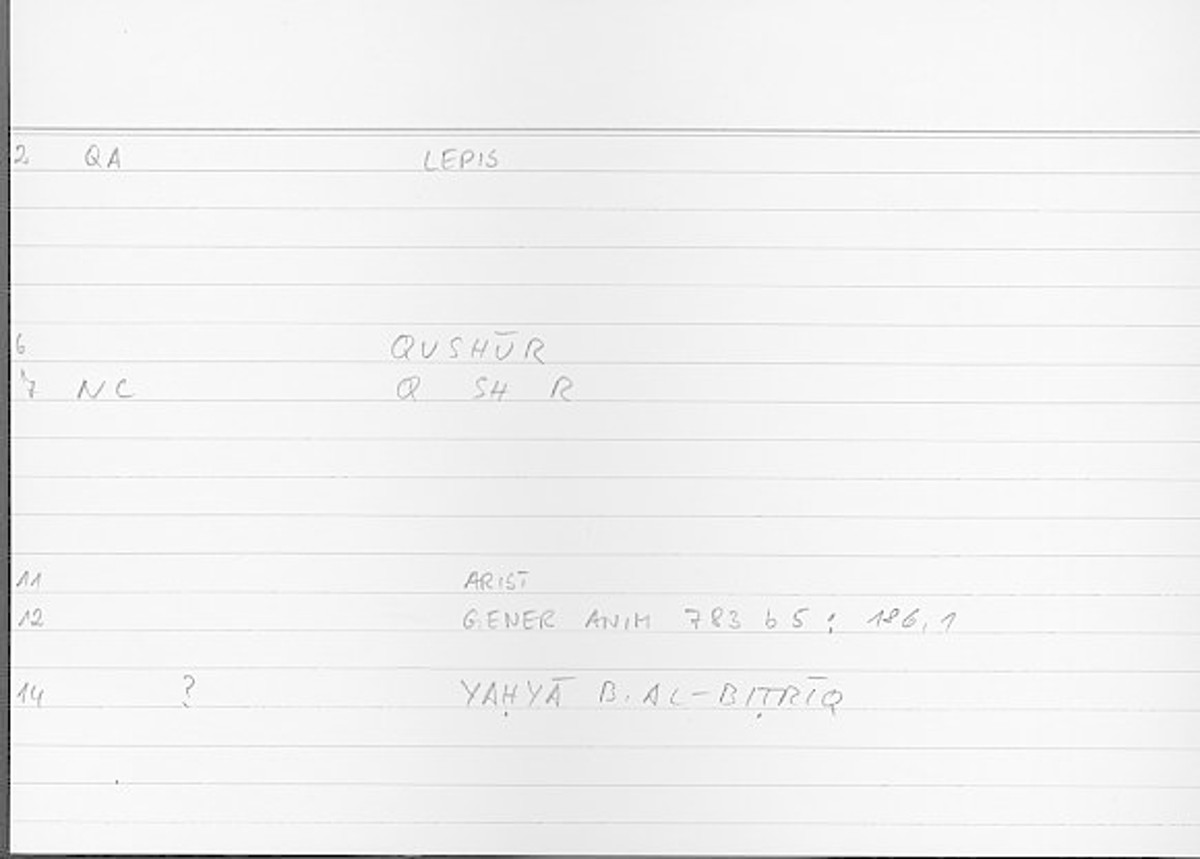 2 QA LEPIS
6 QUSHŪR
7 NC Q SH R
11 ARIST
12 GENER ANIM 783 b 5 : 186,1
14 ? YAḤYĀ B. AL-BIṬRĪQ